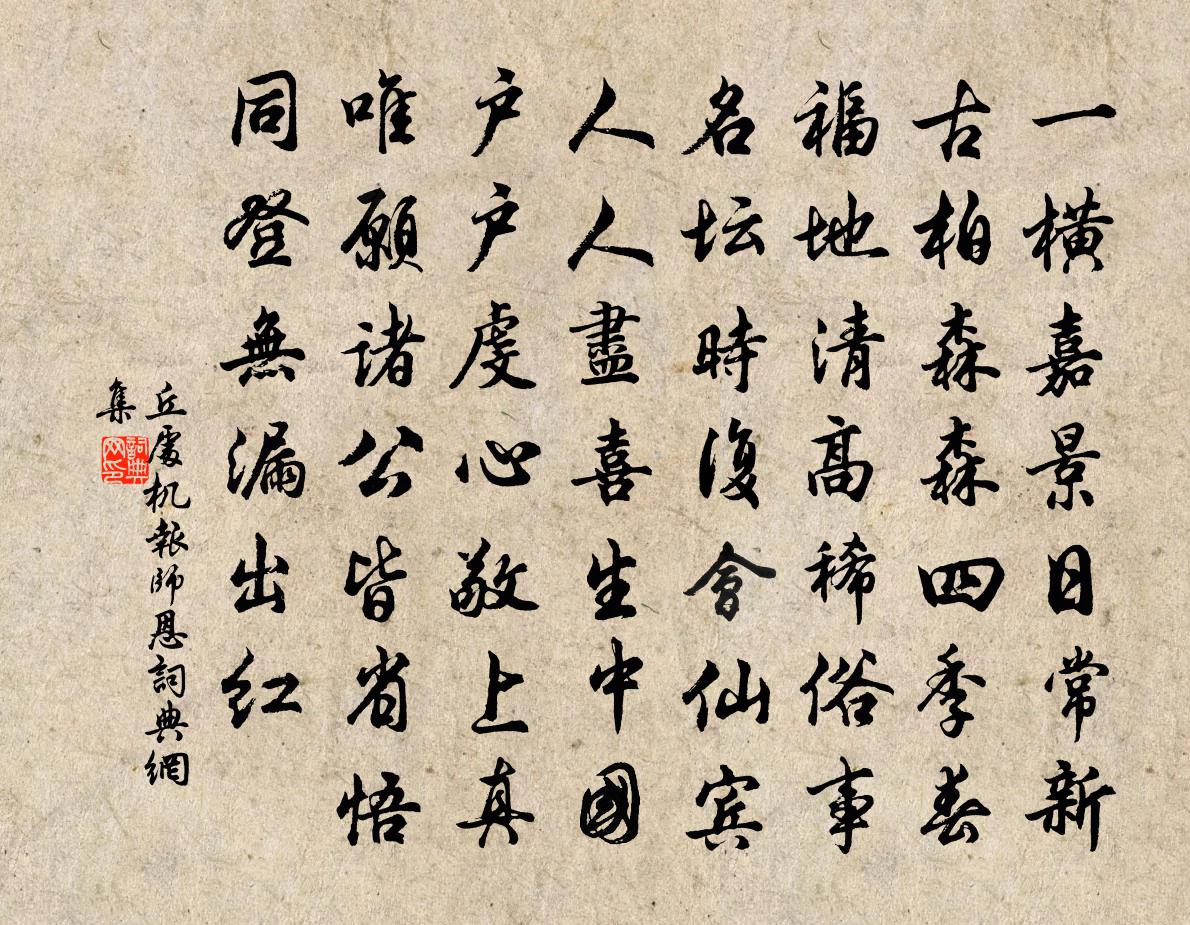 一橫嘉景日常新
古柏森森四季春
福地清高稀俗事
名坛時復會仙宾
人人盡喜生中國
户户虔心敬上真
唯願諸公皆省悟
同登無漏出红
丘處机報師恩詞典網
集
詞典
网印